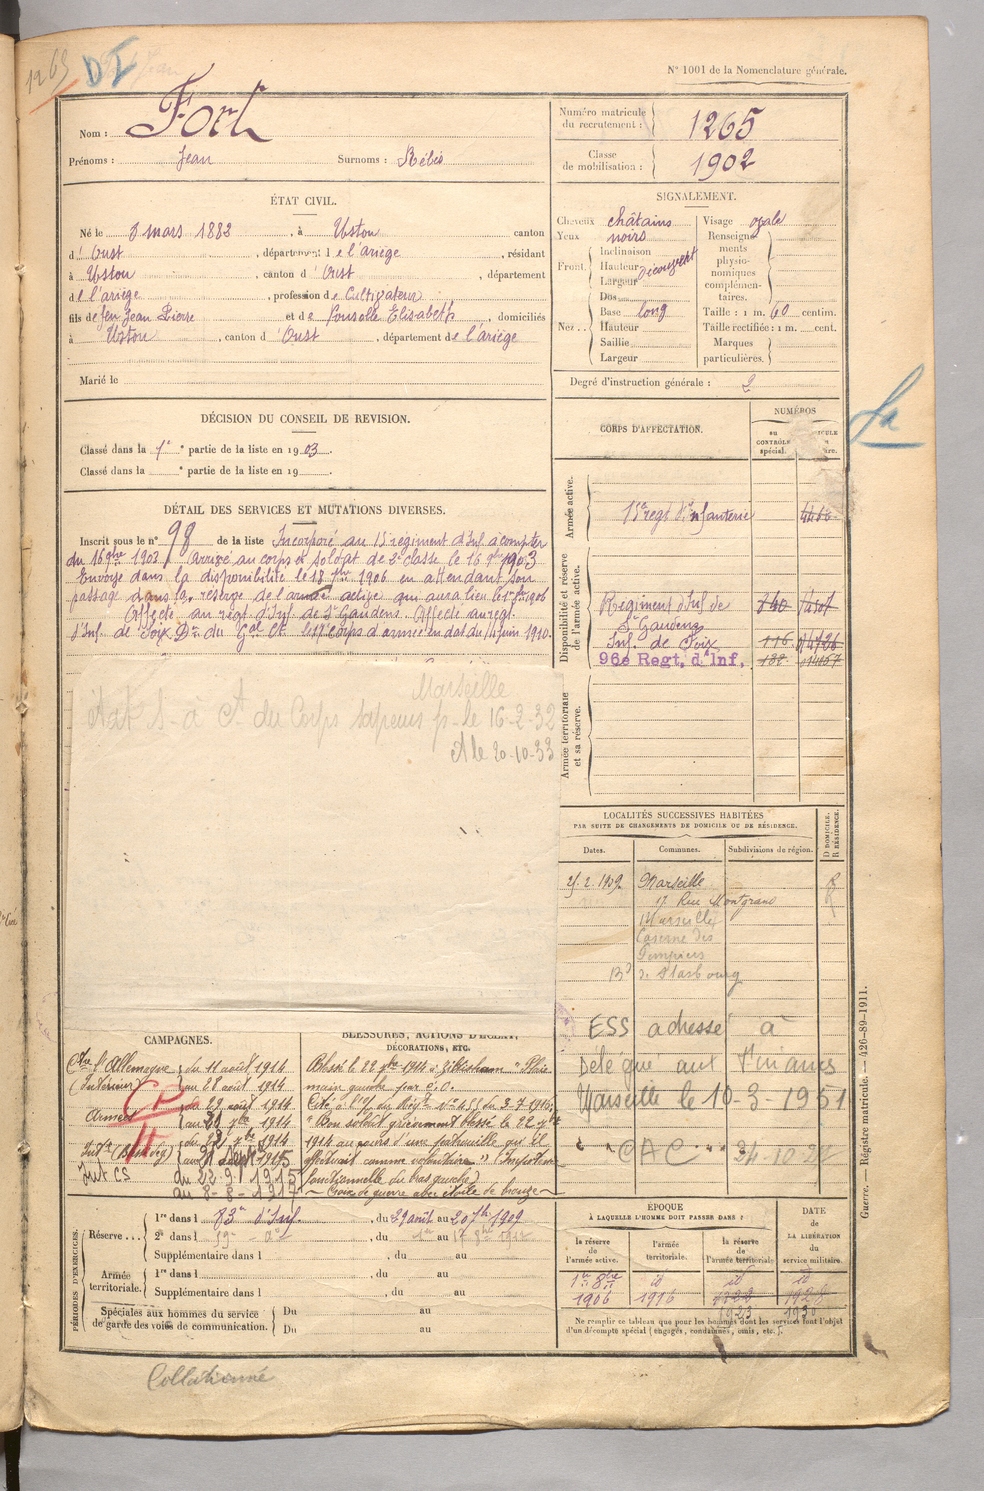 1265
DI
N° 1001 de la Nomenclature générale.
Nom : Fort
Prénoms : Jean Surnoms : Bébis
Numéro matricule du recrutement : 1265
Classe de mobilisation : 1902
ÉTAT CIVIL.
Né le 8 mars 1882, à Ustou canton
d' Oust, département de l'ariège, résidant
à Ustou, canton d' Oust, département
de l'ariège, profession de Cultivateur
fils de feu Jean Pierre et de Elisabeth, domiciliés
à Ustou, canton d' Oust, département de l'ariège
Marié le
SIGNALEMENT.
Cheveux châtains
Yeux noirs
Front. Inclinaison
Hauteur découvert
Largeur
Nez.. Dos
Base long
Hauteur
Saillie
Largeur
Visage ovale
Renseignements physionomiques complémentaires.
Taille : 1 m. 60 centim.
Taille rectifiée : 1 m. cent.
Marques particulières.
Degré d'instruction générale : 2
DÉCISION DU CONSEIL DE REVISION.
Classé dans la 1e partie de la liste en 1903.
Classé dans la e partie de la liste en 19
DÉTAIL DES SERVICES ET MUTATIONS DIVERSES.
Inscrit sous le n° 98 de la liste Incorporé au 15 régiment d'Inf. à compter
du 16 9bre 1903. Arrivé au corps et soldat de 2e classe le 16 9bre 1903
Envoyé dans la disponibilité le 18 7bre 1906 en attendant son
passage dans la réserve de l'armée active qui aura lieu le 1er 8bre 1906
Affecté au régt. d'Inf. de St Gaudens. Affecté au régt.
d'Inf. de Foix Dn du Gal Ct le corps d'armée en dat du 11 juin 1910.
Marseille
du Corps sapeurs p- le 16-2-32
le 20-10-33
CORPS D'AFFECTATION.
NUMÉROS
au CONTRÔLE spécial.
Armée active.
15e régt d'infanterie
Disponibilité et réserve de l'armée active.
Régiment d'Inf. de
St Gaudens
Inf. de Foix
96e Regt. d'Inf.
Armée territoriale et sa réserve.
LOCALITÉS SUCCESSIVES HABITÉES
PAR SUITE DE CHANGEMENTS DE DOMICILE OU DE RÉSIDENCE.
D. DOMICILE. R. RÉSIDENCE.
Dates. Communes. Subdivisions de région.
2. 1909 Marseille R
17 Rue Montgrand
Marseille
Caserne des
Pompiers
Bd de Strasbourg
ESS adressé à
Délégué aux Finances
Marseille le 10-3-1951
CAC
CAMPAGNES.
Ctre l'Allemagne du 11 août 1914
(Intérieur) au 28 août 1914
Armées du 29 août 1914
CD
Int CS du 22-9-1915
au 8-8-1917
BLESSURES, ACTIONS D'ÉCLAT, DÉCORATIONS, ETC.
Blessé le 22 1914 à Zillisheim "Plaie
main gauche par é.o.
Cité à l'o/ du Régt n° 455 du 3-7-1916
"Bon soldat grièvement blessé le 22
1914 au cours d'une patrouille qu'il
effectuait comme volontaire" (Impotence
fonctionnelle du bras gauche)
Croix de guerre avec étoile de bronze
PÉRIODES D'EXERCICES.
Réserve... 1re dans l 83e d'Inf., du 29 août au 20 7bre 1909
2e dans l 59e, du 1er au 17
Supplémentaire dans l, du au
Armée territoriale. 1re dans l, du au
Supplémentaire dans l, du au
Spéciales aux hommes du service de garde des voies de communication. Du au
Du au
ÉPOQUE
À LAQUELLE L'HOMME DOIT PASSER DANS :
la réserve de l'armée active. l'armée territoriale. la réserve de l'armée territoriale
DATE de LA LIBÉRATION du service militaire.
1er 8bre id id id
1906 1916 1922 1928
1923 1930
Ne remplir ce tableau que pour les hommes dont les services font l'objet d'un décompte spécial (engagés, condamnés, omis, etc.).
Guerre. — Régistre matricule. — 426-89-1911.
Collationné